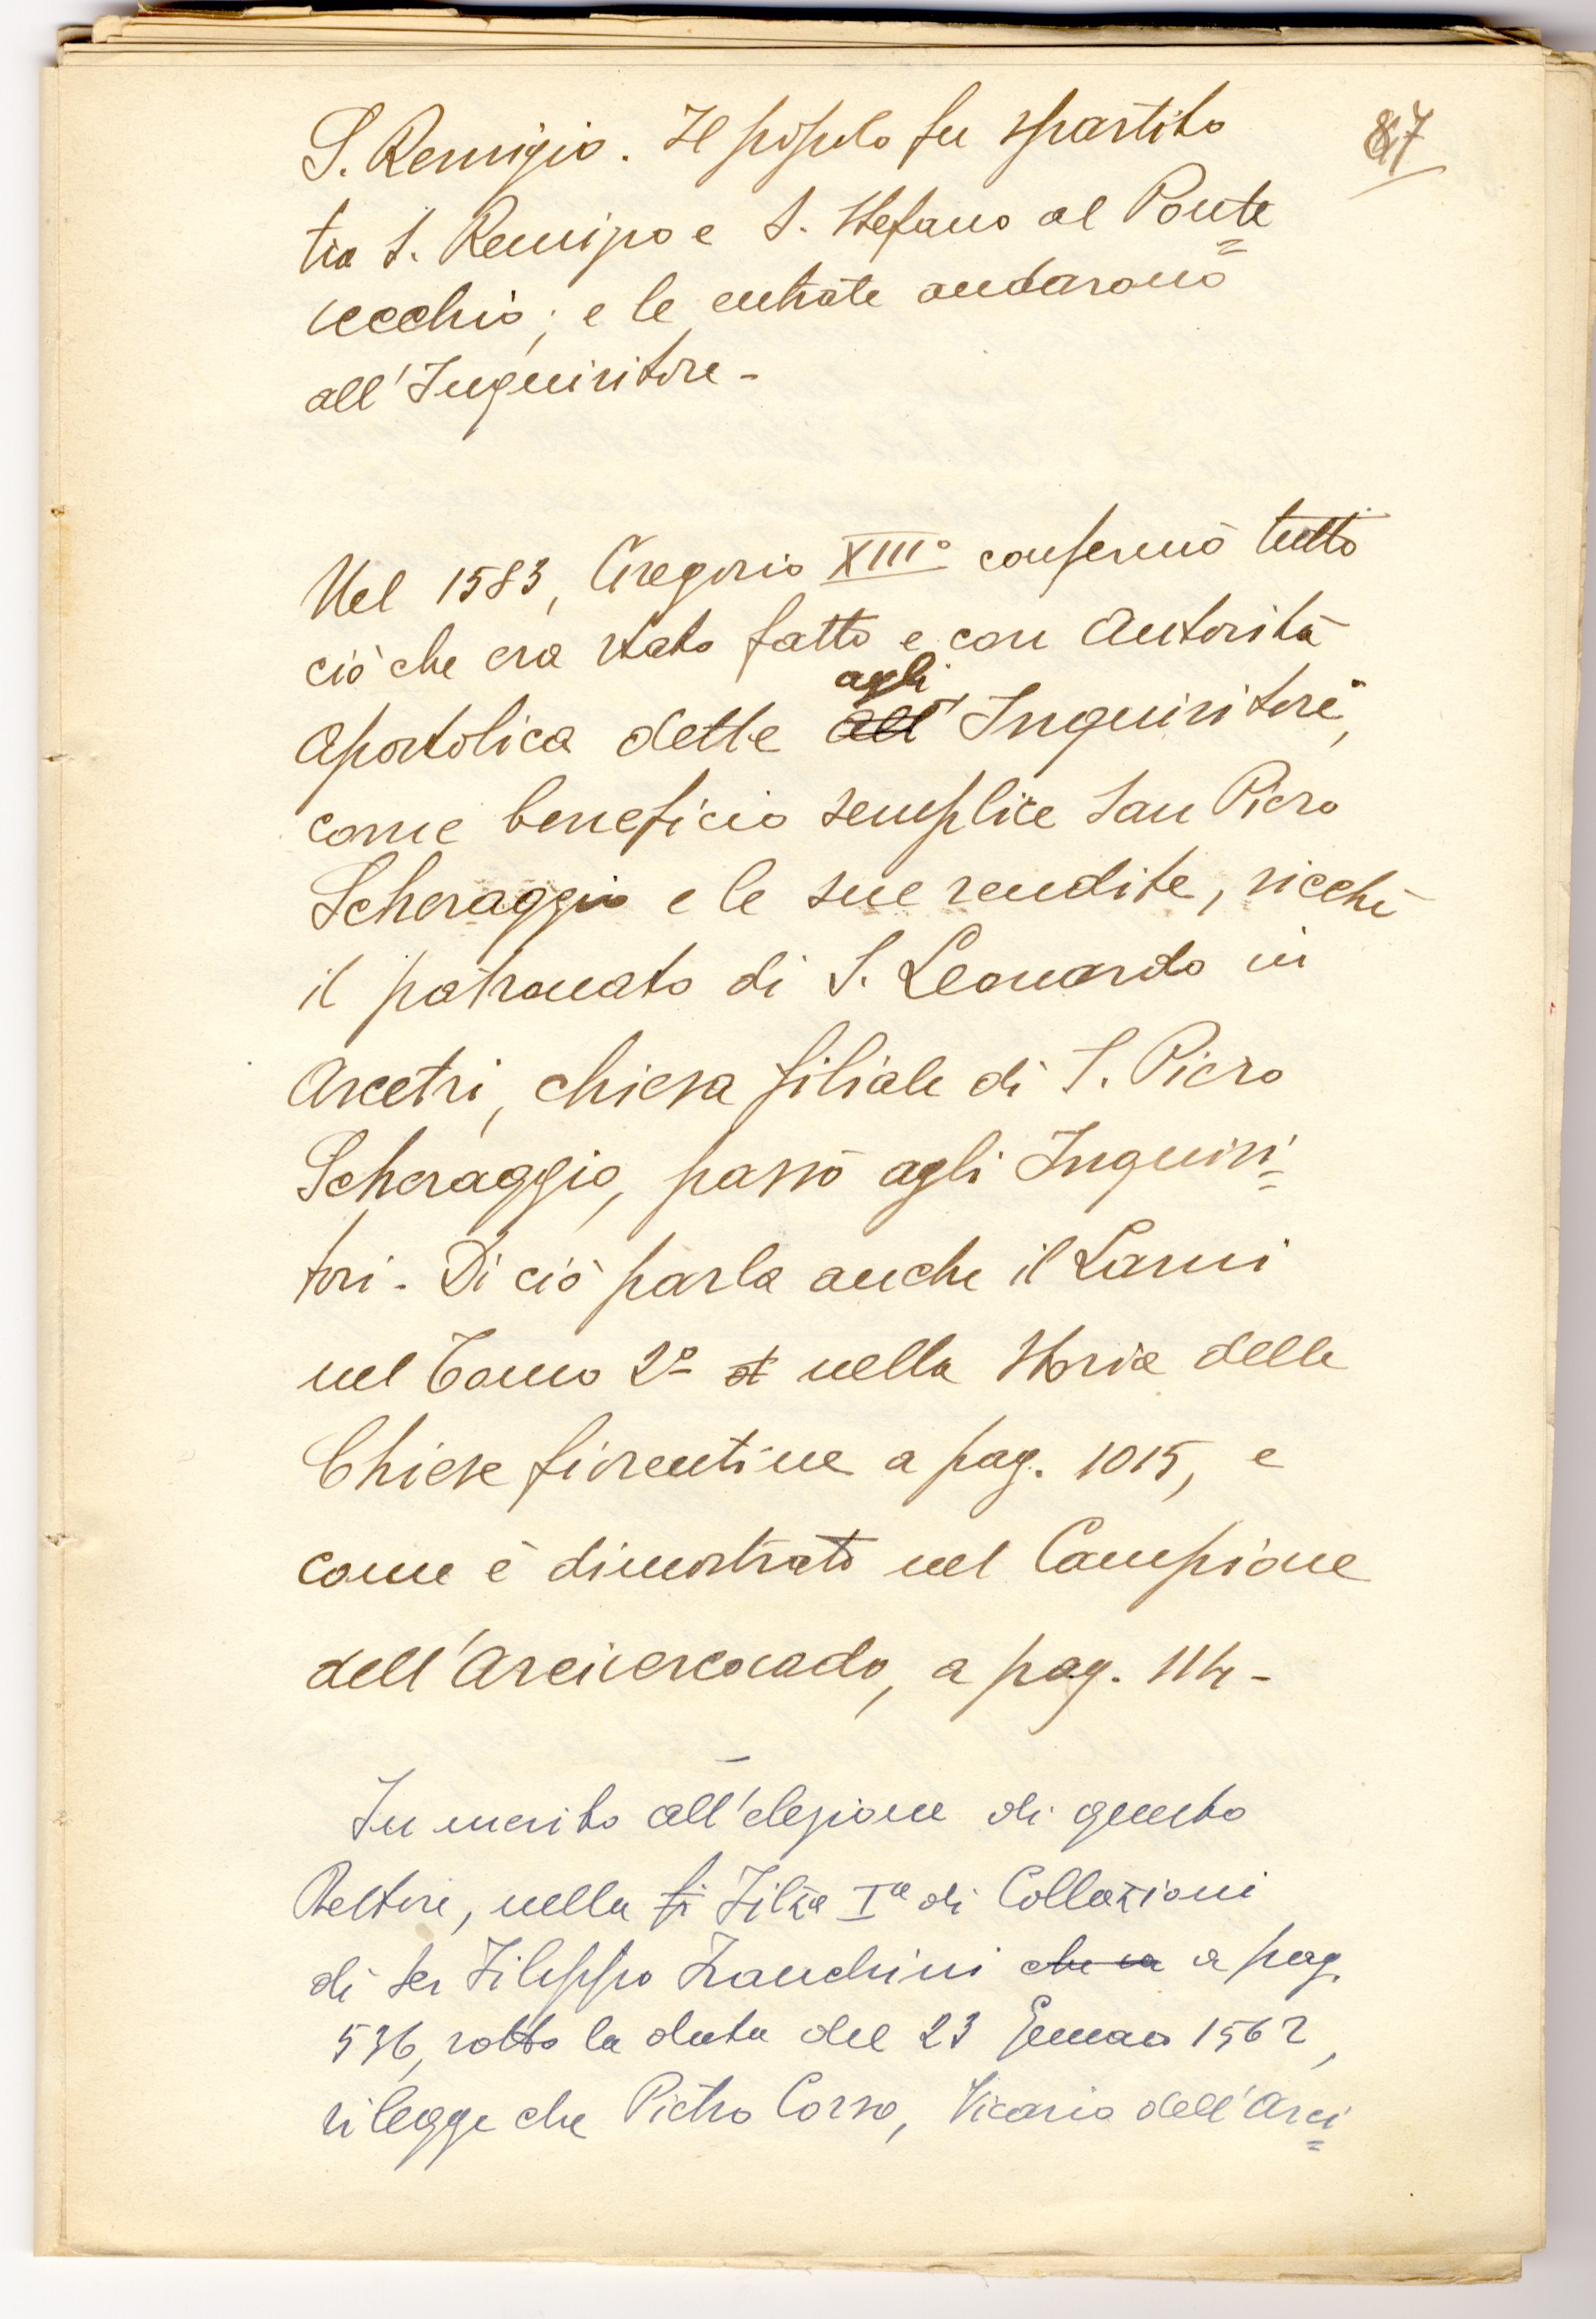 87
S. Remigio. Il popolo fu spartito
tra S. Remigio e S. Stefano al Ponte=
vecchio; e le entrate andarono
all'Inquisitore -
Nel 1583, Gregorio XIII° confermò tutto
ciò che era stato fatto e con Autorità
agli
Apostolica dette all' Inquisitori,
come beneficio semplice San Piero
Scheraggio e le sue rendite, sicchè
il patronato di S. Leonardo in
Arcetri, chiesa filiale di S. Piero
Scheraggio, passò agli Inquisi=
tori - Di ciò parla anche il Lami
nel Tomo 2° nella Storia delle
Chiese fiorentine a pag. 1015, e
come è dimostrato nel Campione
dell'Arcivescovado, a pag. 114 -
In merito all'elezione di questo
Rettore, nella fi Filza Iª di Collazioni
di ser Filippo Franchini che va a pag.
536, sotto la data del 23 1562,
si legge che Pietro Corso, Vicario dell'Arci=